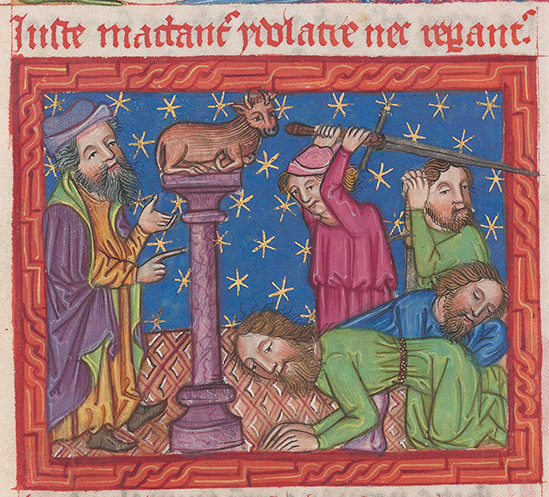 Iuste mactant᷑ ydolatre nec reꝑant᷑.